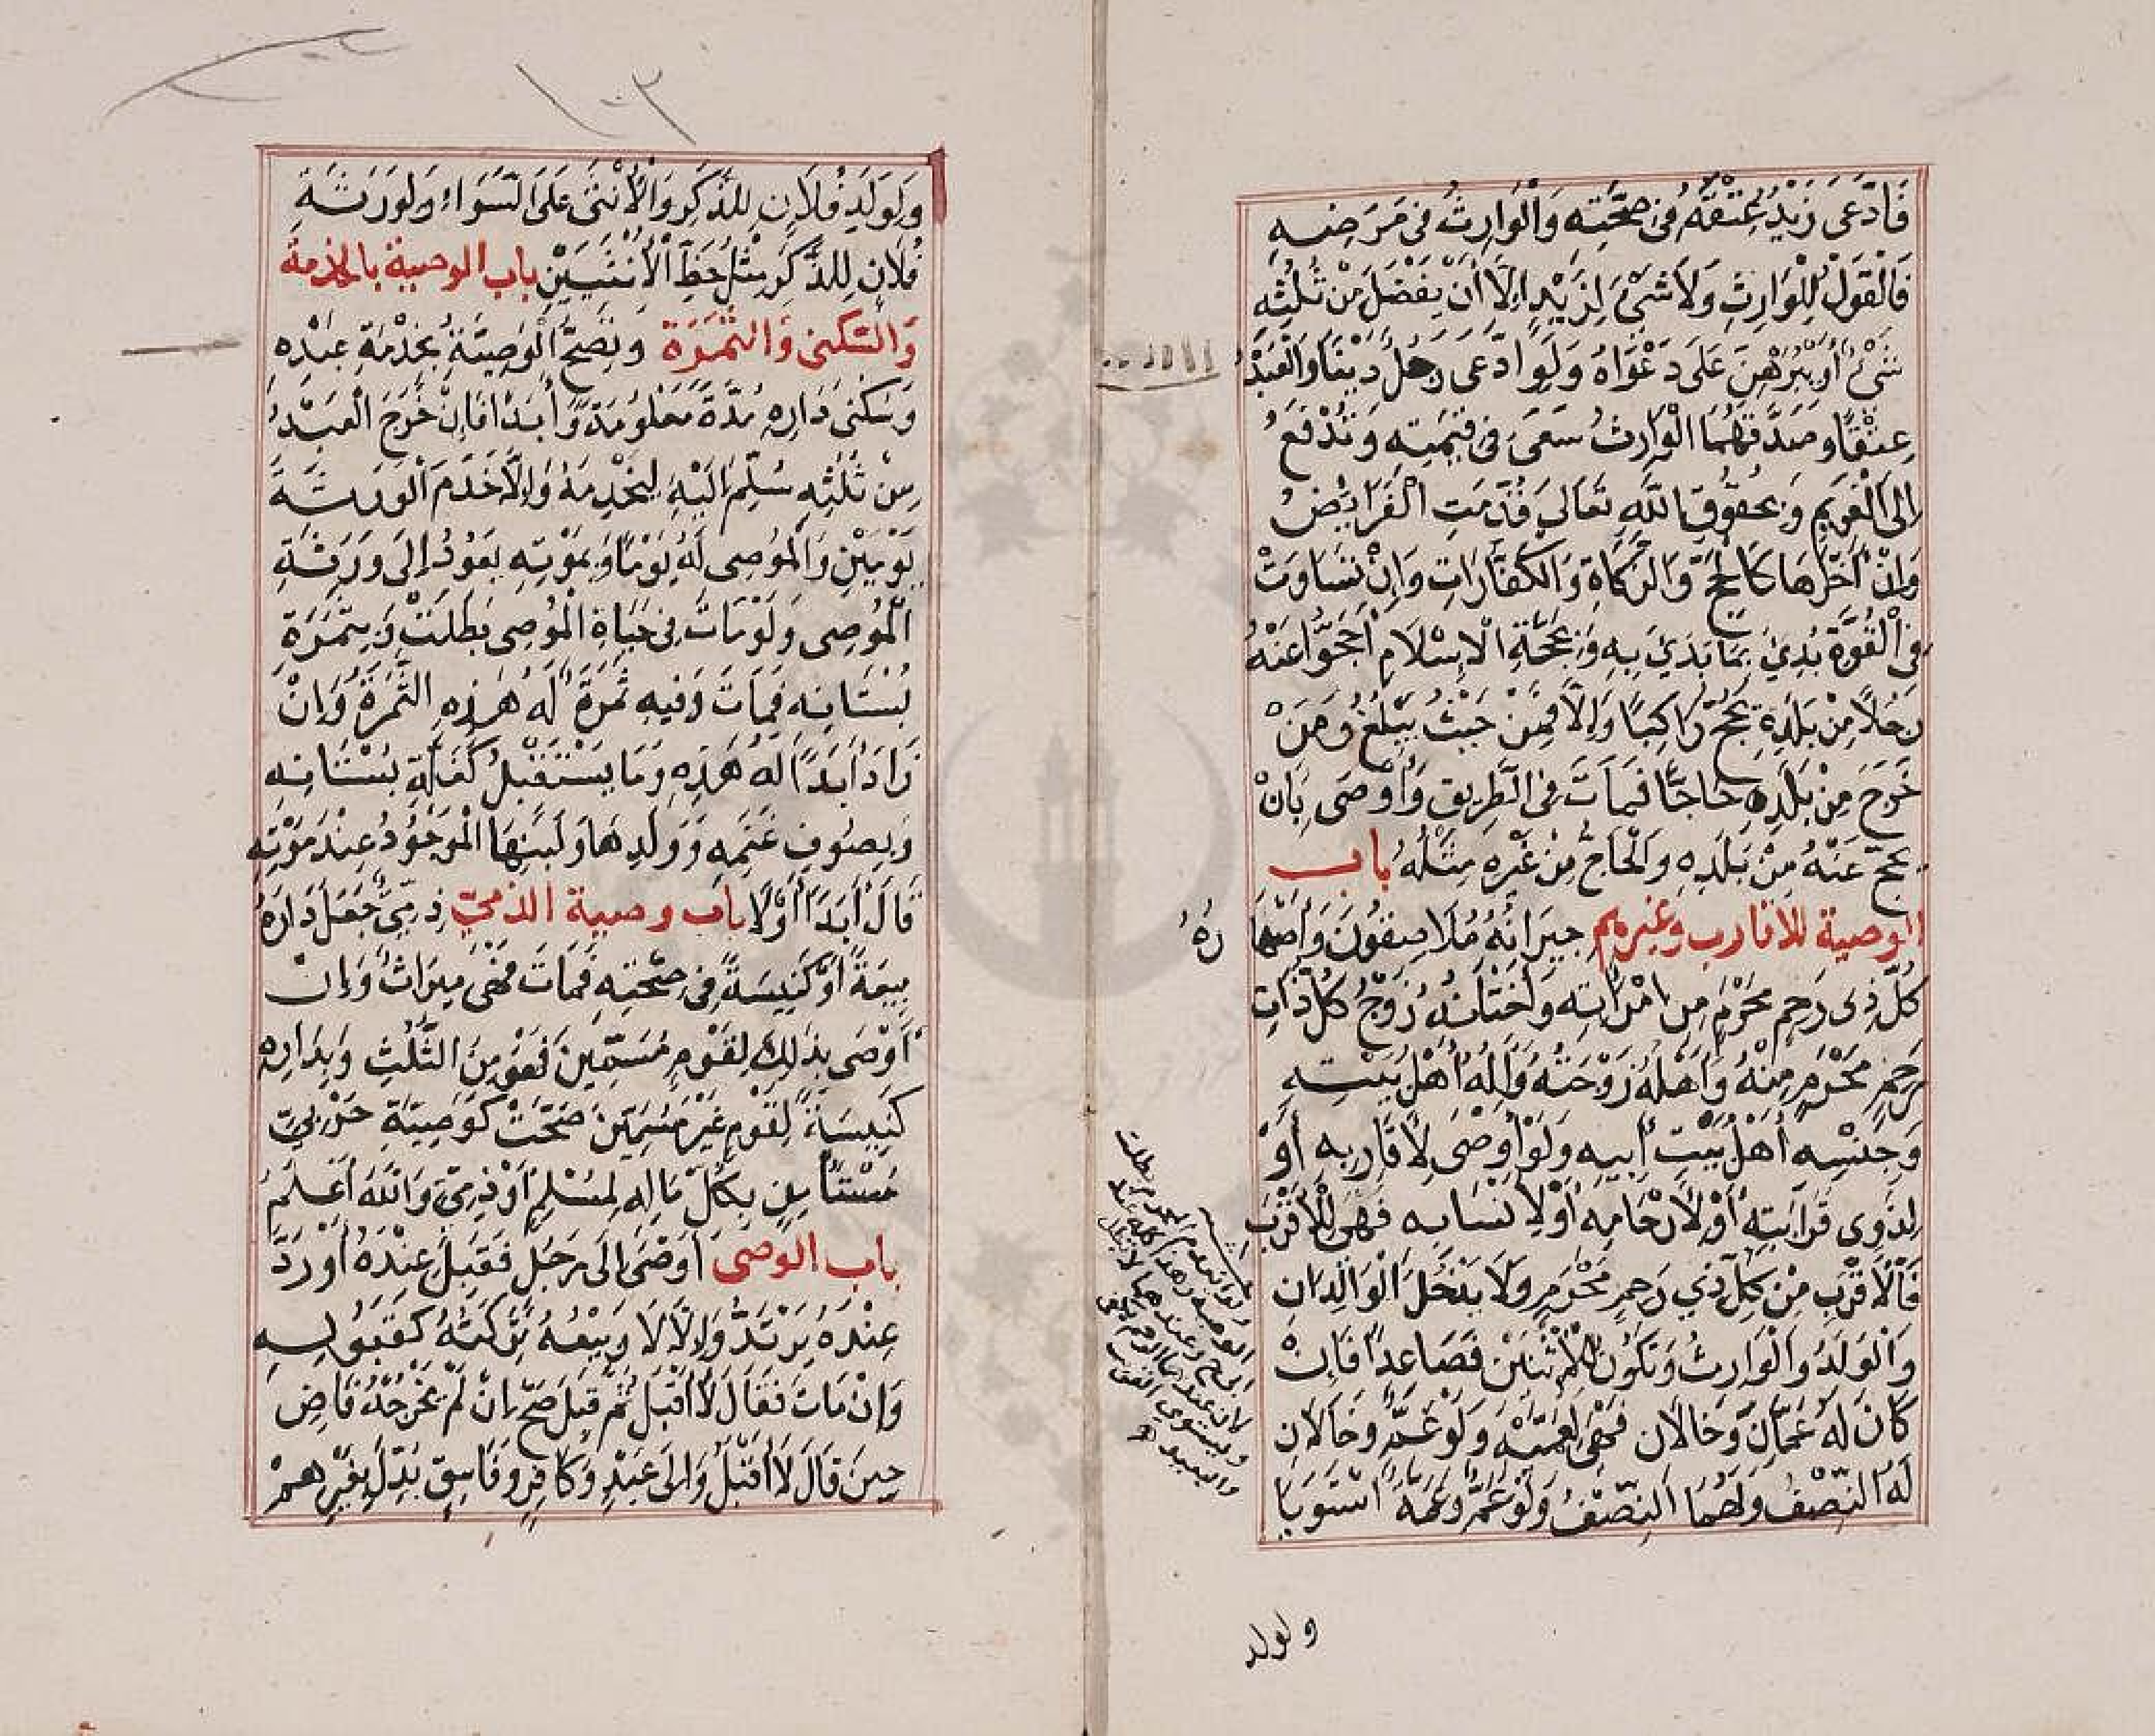 فَادَّعَى زَيْدٌ عِتْقَهُ فِى صِحَّتِهِ وَالْوَارِثُ فِى مَرَضِهِ
فَالْقَوْلُ لِلْوَارِثِ وَلَا شَىْءَ لِزَيْدٍ إِلَّا أَنْ يَفْضَلَ مِنْ ثُلُثِهِ
شَىْءٌ أَوْ يُبَرْهِنَ عَلَى دَعْوَاهُ وَلَوِ ادَّعَى رَجُلٌ دَيْنًا وَالْعَبْدُ
عِتْقًا وَصَدَّقَهُمَا الْوَارِثُ سَعَى فِى قِيمَتِهِ وَتُدْفَعُ
إِلَى الْغَرِيمِ وَبِحُقُوقِ اللَّهِ تَعَالَى قُدِّمَتِ الْفَرَائِضُ
وَإِنْ أَخَّرَهَا كَالْحَجِّ وَالزَّكَاةِ وَالْكَفَّارَاتِ وَإِنْ تَسَاوَتْ
فِى الْقُوَّةِ بُدِئَ بِمَا بَدَئَ بِهِ وَبِحَجَّةِ الْإِسْلَامِ أَحَجُّوا عَنْهُ
رَجُلًا مِنْ بَلَدِهِ يَحُجُّ رَاكِبًا وَإِلَّا فَمِنْ حَيْثُ يَبْلُغُ وَمَنْ
خَرَجَ مِنْ بَلَدِهِ حَاجًّا فَمَاتَ فِى الطَّرِيقِ وَأَوْصَى بِأَنْ
يُحَجَّ عَنْهُ مِنْ بَلَدِهِ وَالْحَاجُّ مِنْ غَيْرِهِ مِثْلُهُ باب
الوصية للاقارب وغيرهم جِيرَانُهُ مُلَاصِقُونَ وَأَصْهَا رُهُ
كُلُّ ذِى رَحِمٍ مَحْرَمٍ مِنِ امْرَأَتِهِ وَأَخْتَانُهُ زَوْجُ كُلِّ ذَاتِ
رَحِمٍ مَحْرَمٍ مِنْهُ وَأَهْلُهُ زَوْجَتُهُ وَآلُهُ أَهْلُ بَيْتِهِ
وَجِنْسُهُ أَهْلُ بَيْتِ أَبِيهِ وَلَوْ أَوْصَى لِأَقَارِبِهِ أَوْ
لِذَوِى قَرَابَتِهِ أَوْ لِأَرْحَامِهِ أَوْ لِأَنْسَابِهِ فَهِىَ لِلْأَقْرَبِ
فَالْأَقْرَبِ مِنْ كُلِّ ذِي رَحِمٍ مَحْرَمٍ وَلَا يَدْخُلُ الْوَالِدَانِ
وَالْوَلَدُ وَالْوَارِثُ وَتَكُونُ لِلْاِثْنَيْنِ فَصَاعِدًا فَإِنْ
كَانَ لَهُ عَمَّانِ وَخَالَانِ فَهِىَ لِعَمَّيْهِ وَلَوْ عَمٌّ وَخَالَانِ
لَهُ النِّصْفُ وَلَهُمَا النِّصْفُ وَلَوْ عَمٌّ وَعَمَّةٌ اسْتَوَيَا
ولولد
وَلِوَلَدِ فُلَانٍ لِلذَّكَرِ وَالْأُنْثَى عَلَى السَّوَاءِ وَلِوَرَثَةِ
فُلَانٍ لِلذَّكَرِ مِثْلُ حَظِّ الْأُنْثَيَيْنِ باب الوصية بالخدمة
وَالسُّكْنى وَالثَّمَرَة وَتَصِحُّ الْوَصِيَّةُ بِخِدْمَةِ عَبْدِهِ
وَسُكْنَى دَارِهِ مُدَّةً مَعْلُومَةً وَأَبَدًا فَإِنْ خَرَجَ الْعَبْدُ
مِنْ ثُلُثِهِ سُلِّمَ إِلَيْهِ لِيَخْدِمَهُ وَإِلَّا خَدَمَ الْوَرَثَةَ
يَوْمَيْنِ وَالْمُوصَى لَهُ يَوْمًا وَبِمَوْتِهِ يَعُودُ إِلَى وَرَثَةِ
الْمُوصِى وَلَوْ مَاتَ فِى حَيَاةِ الْمُوصِى بَطَلَتْ وَبِثَمَرَةِ
بُسْتَانِهِ فَمَاتَ وَفِيهِ ثَمَرَةٌ لَهُ هَذِهِ الثَّمَرَةُ وَإِنْ
زَادَ أَبَدًا لَهُ هَذِهِ وَمَا يَسْتَقْبِلُ كَغَلَّةِ بُسْتَانِهِ
وَبِصُوفِ غَنَمِهِ وَوَلَدِهَا وَلَبَنِهَا الْمَوْجُودُ عِنْدَ مَوْتِهِ
قَالَ أَبَدًا أَوْ لَا باب وصية الذميّ ذِمِّىٌّ جَعَلَ دَارَهُ
بِيعَةً أَوْ كَنِيسَةً فِى صِحَّتِهِ فَمَاتَ فَهِىَ مِيرَاثٌ وَإِنْ
أَوْصَى بِذَلِكَ لِقَوْمٍ مُسَمَّيْنَ فَهُوَ مِنَ الثُّلُثِ وَبِدَارِهِ
كَنِيسَةً لِقَوْمٍ غَيْرِ مُسَمَّيْنَ صَحَّتْ كَوَصِيَّةِ حَرْبِيٍّ
مُسْتَأْمِنٍ بِكُلِّ مَالِهِ لِمُسْلِمٍ أَوْ ذِمِّيٍّ وَاللَّهُ أَعْلَمُ
باب الوصى أَوْصَى إِلَى رَجُلٍ فَقَبِلَ عِنْدَهُ أَوْ رَدَّ
عِنْدَهُ يَرْتَدُّ وَإِلَّا لَا وَبَيْعُهُ تَرِكَتَهُ كَقَبُولِهِ
وَإِنْ مَاتَ فَقَالَ لَا أَقْبَلُ ثُمَّ قَبِلَ صَحَّ إِنْ لَمْ يُخْرِجْهُ قَاضٍ
حِينَ قَالَ لَا أَقْبَلُ وَإِلَى عَبْدٍ وَكَافِرٍ وَفَاسِقٍ بَدَّلَ بِغَيْرِهِمْ